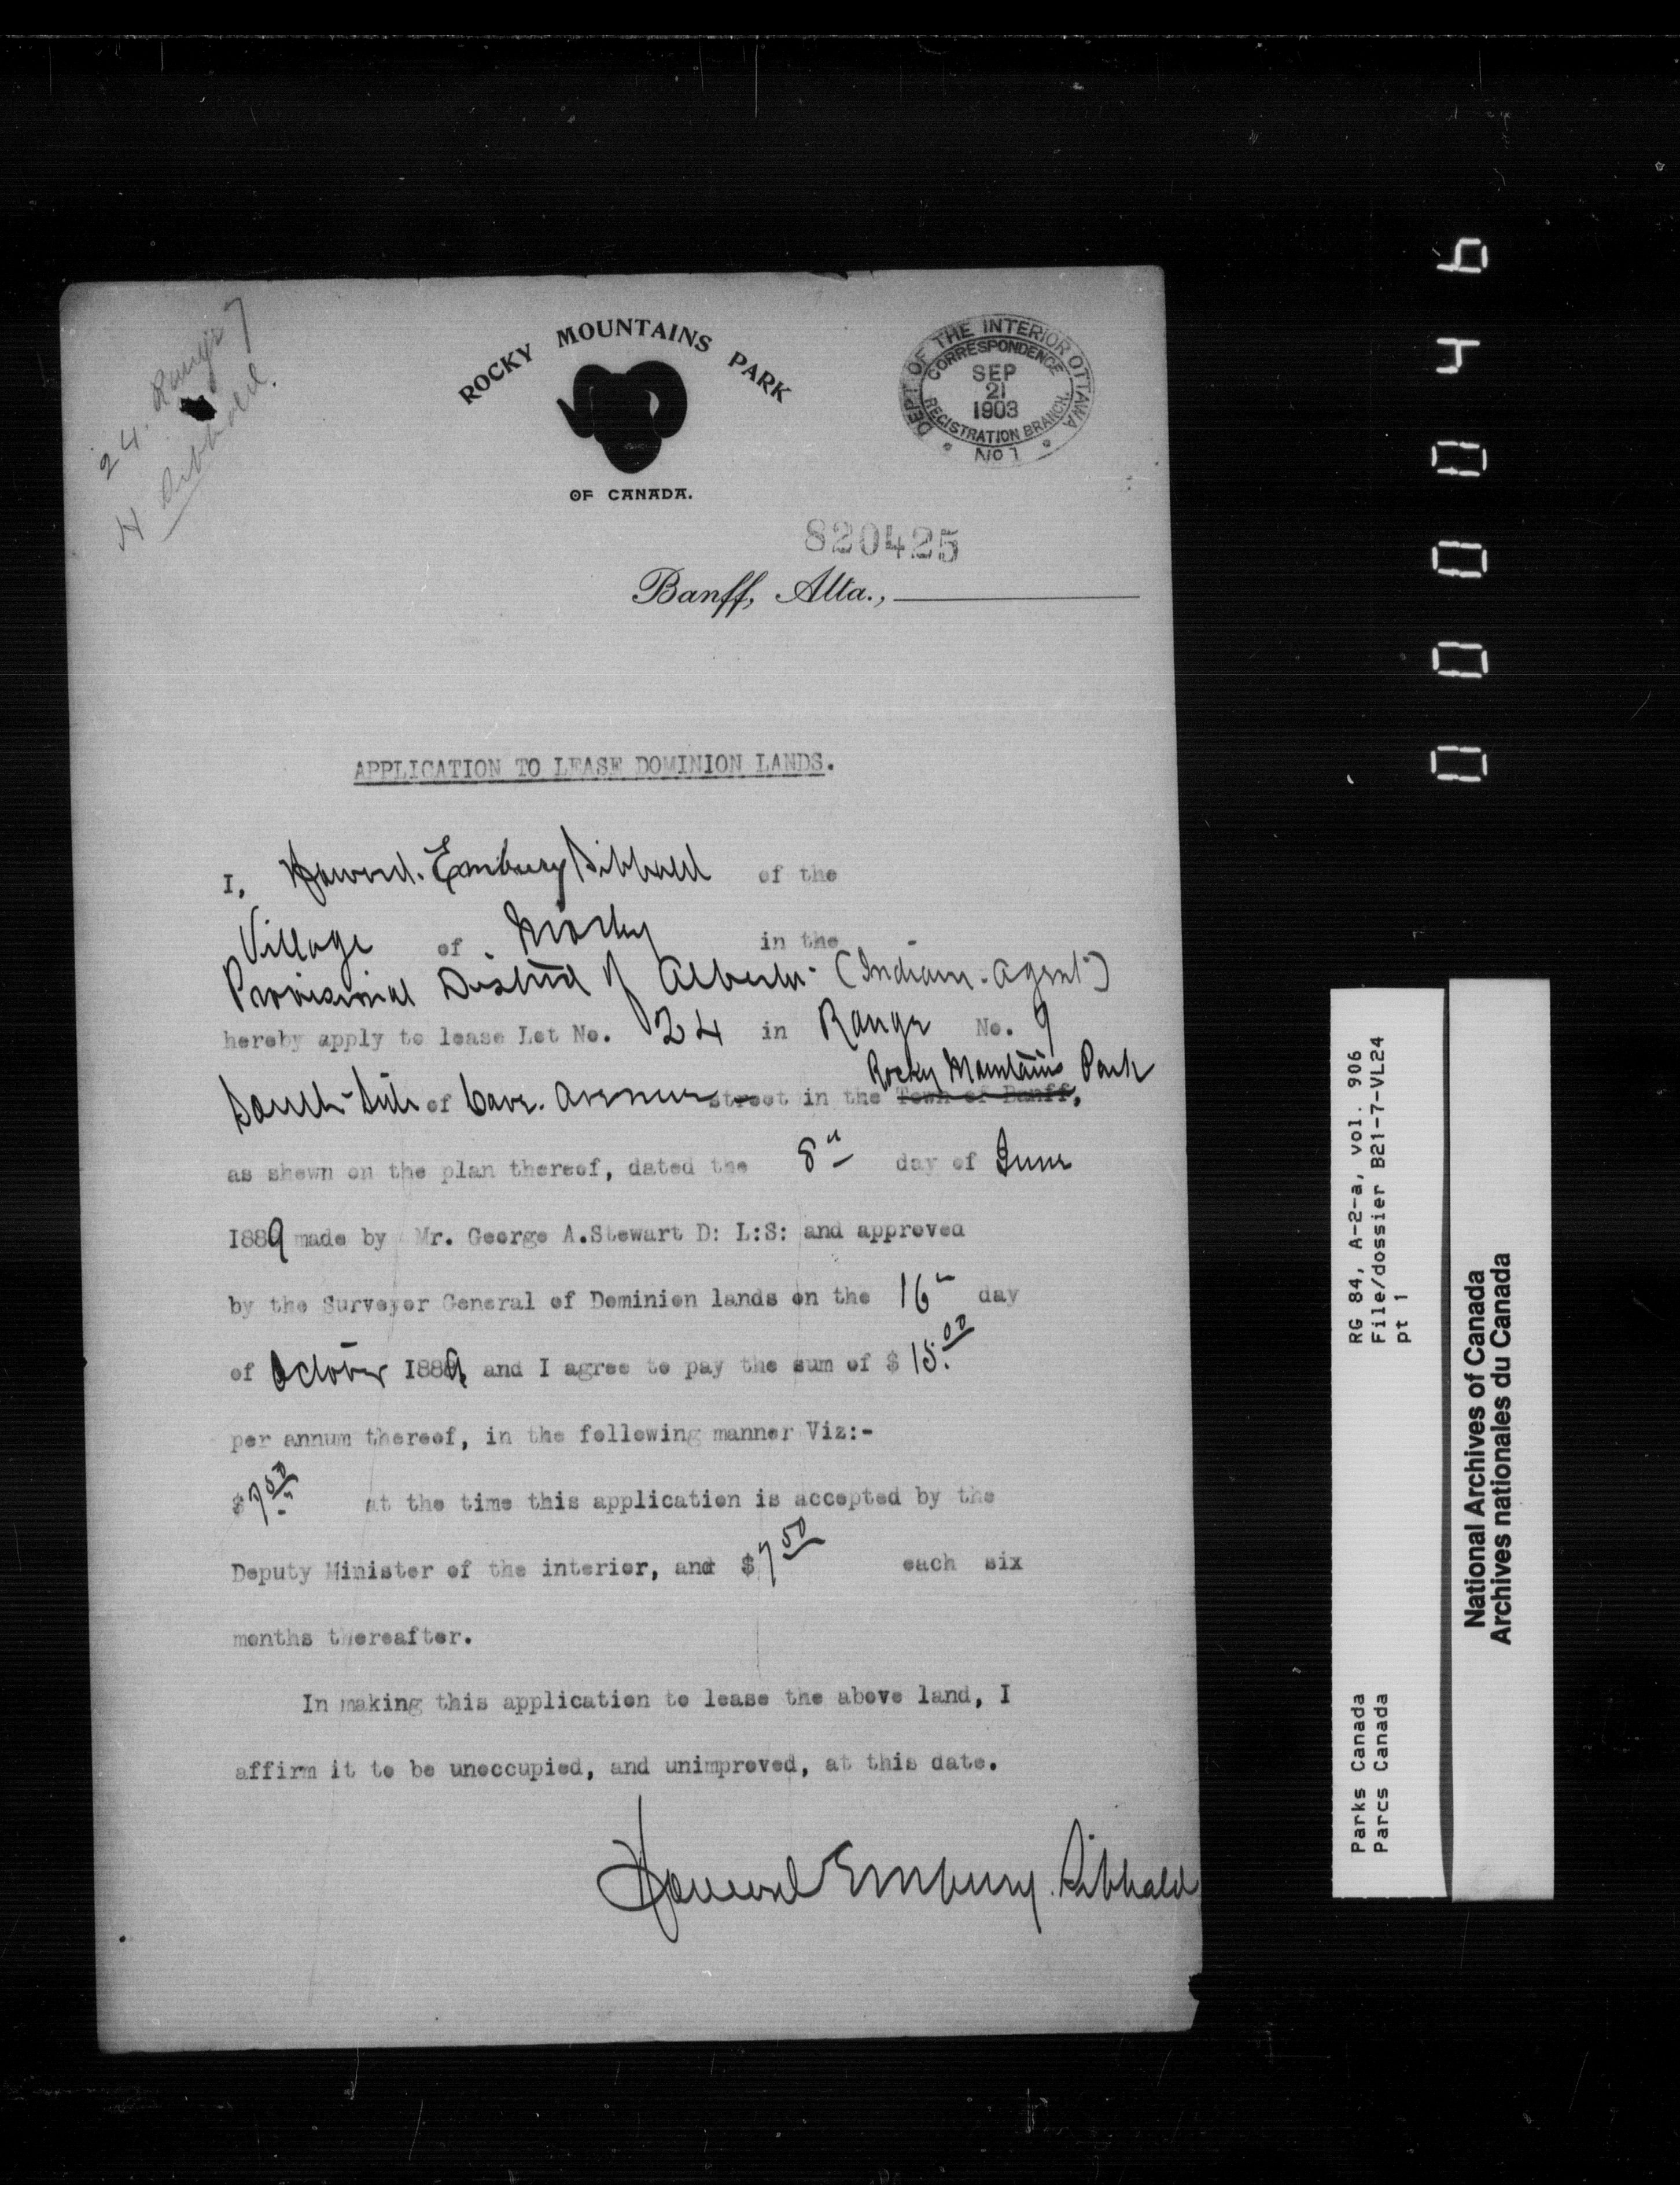 24. Range 7
H Sibbald.
ROCKY MOUNTAINS PARK
OF CANADA.
DEPT OF THE INTERIOR OTTAWA
CORRESPONDENCE
SEP
21
1903
REGISTRATION BRANCH.
No 1
820425
Banff, Alta.,
APPLICATION TO LEASE DOMINION LANDS.
I, Howard. Embury Sibbald of the
Village of Morley in the
Provisional District of Alberta (Indian Agent)
hereby apply to lease Lot No. 24 in Range No. 7
Rocky Mountains Park
South Side of Cave Avenue street in the Town of Banff,
as shewn on the plan thereof, dated the 8th day of June
1889 made by Mr. George A.Stewart D: L:S: and approved
by the Surveyor General of Dominion lands on the 16th day
of October 1889, and I agree to pay the sum of $ 15.00
per annum thereof, in the following manner Viz:-
$7.50 at the time this application is accepted by the
Deputy Minister of the interior, and $7.50 each six
months thereafter.
In making this application to lease the above land, I
affirm it to be unoccupied, and unimproved, at this date.
Howard Embury. Sibbald
000046
RG 84, A-2-a, vol. 906
File/dossier B21-7-VL24
pt 1
Parks Canada
Parcs Canada
National Archives of Canada
Archives nationales du Canada